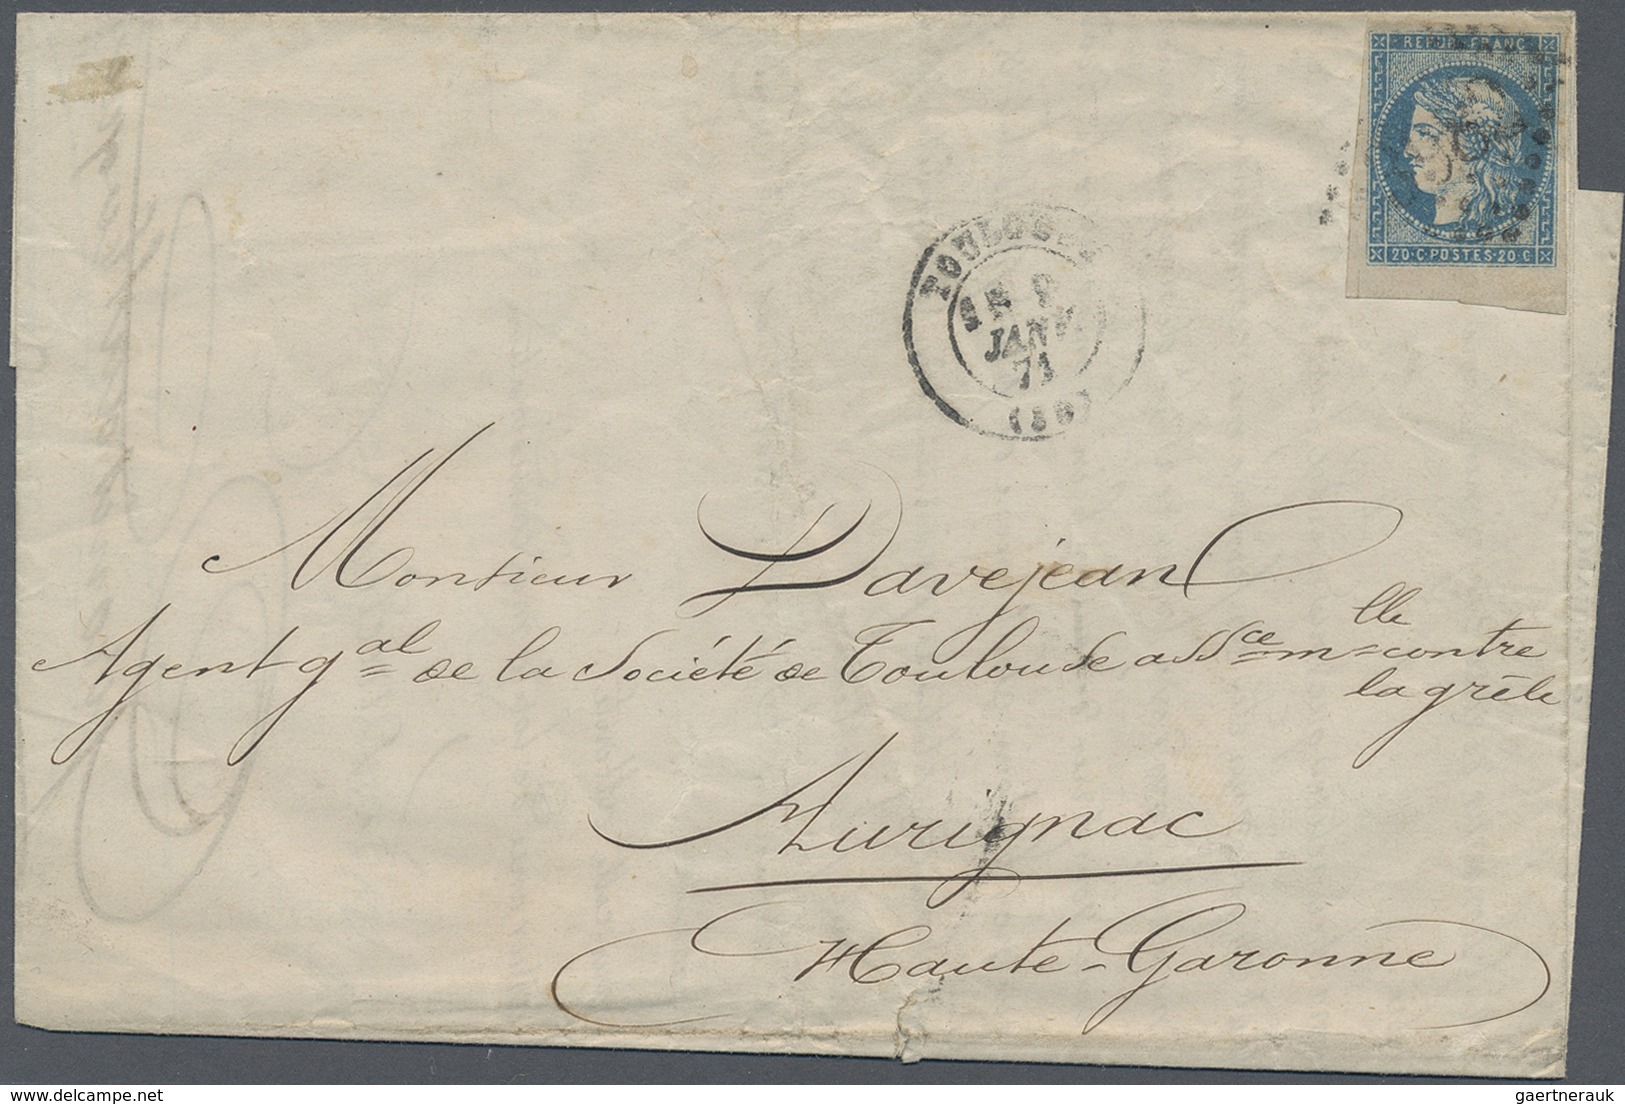 REPUB. FRANC.
20·C·POSTES·20·C
TOULOUSE
JANV.
71
Monsieur Davejean
Agent g^al de la Société de Toulouse ass^ce m^lle contre
la grêle
Aurignac
Haute-Garonne
gaertnerauk